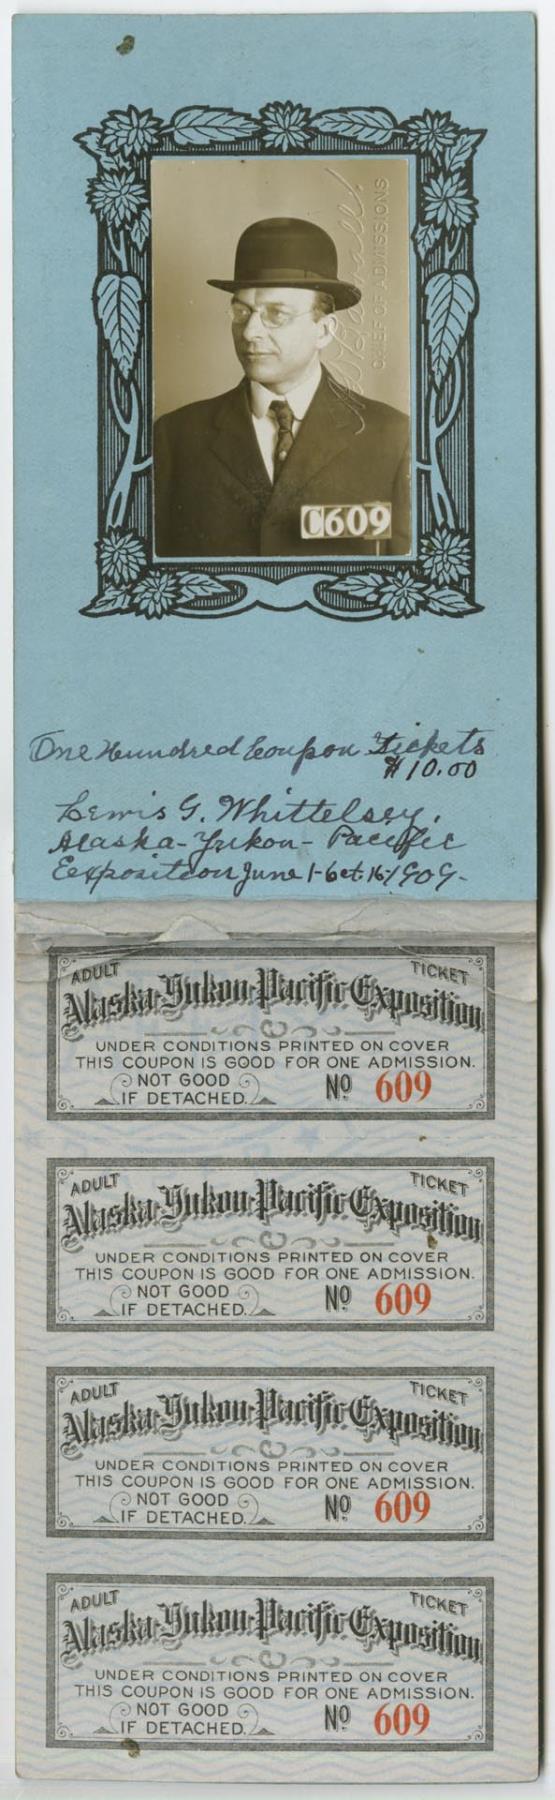 CHIEF OF ADMISSIONS
C609
One Hundred Coupon Tickets
$10.00
Lewis G. Whittelsey.
Alaska-Yukon-Pacific
Exposition June 1-Oct. 16-1909-
ADULT TICKET
Alaska-Yukon-Pacific Exposition
UNDER CONDITIONS PRINTED ON COVER
THIS COUPON IS GOOD FOR ONE ADMISSION.
NOT GOOD
IF DETACHED. No 609
ADULT TICKET
Alaska-Yukon-Pacific Exposition
UNDER CONDITIONS PRINTED ON COVER
THIS COUPON IS GOOD FOR ONE ADMISSION.
NOT GOOD
IF DETACHED. No 609
ADULT TICKET
Alaska-Yukon-Pacific Exposition
UNDER CONDITIONS PRINTED ON COVER
THIS COUPON IS GOOD FOR ONE ADMISSION.
NOT GOOD
IF DETACHED. No 609
ADULT TICKET
Alaska-Yukon-Pacific Exposition
UNDER CONDITIONS PRINTED ON COVER
THIS COUPON IS GOOD FOR ONE ADMISSION.
NOT GOOD
IF DETACHED. No 609